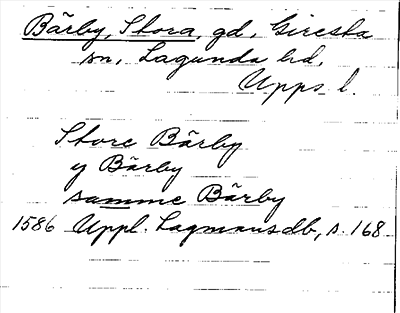 Bärby, Stora, gd, Giresta
sn, Lagunda hd,
Upps. l.
Store Bärby
y Bärby
samme Bärby
1586 Uppl. Lagmansdb, s. 168